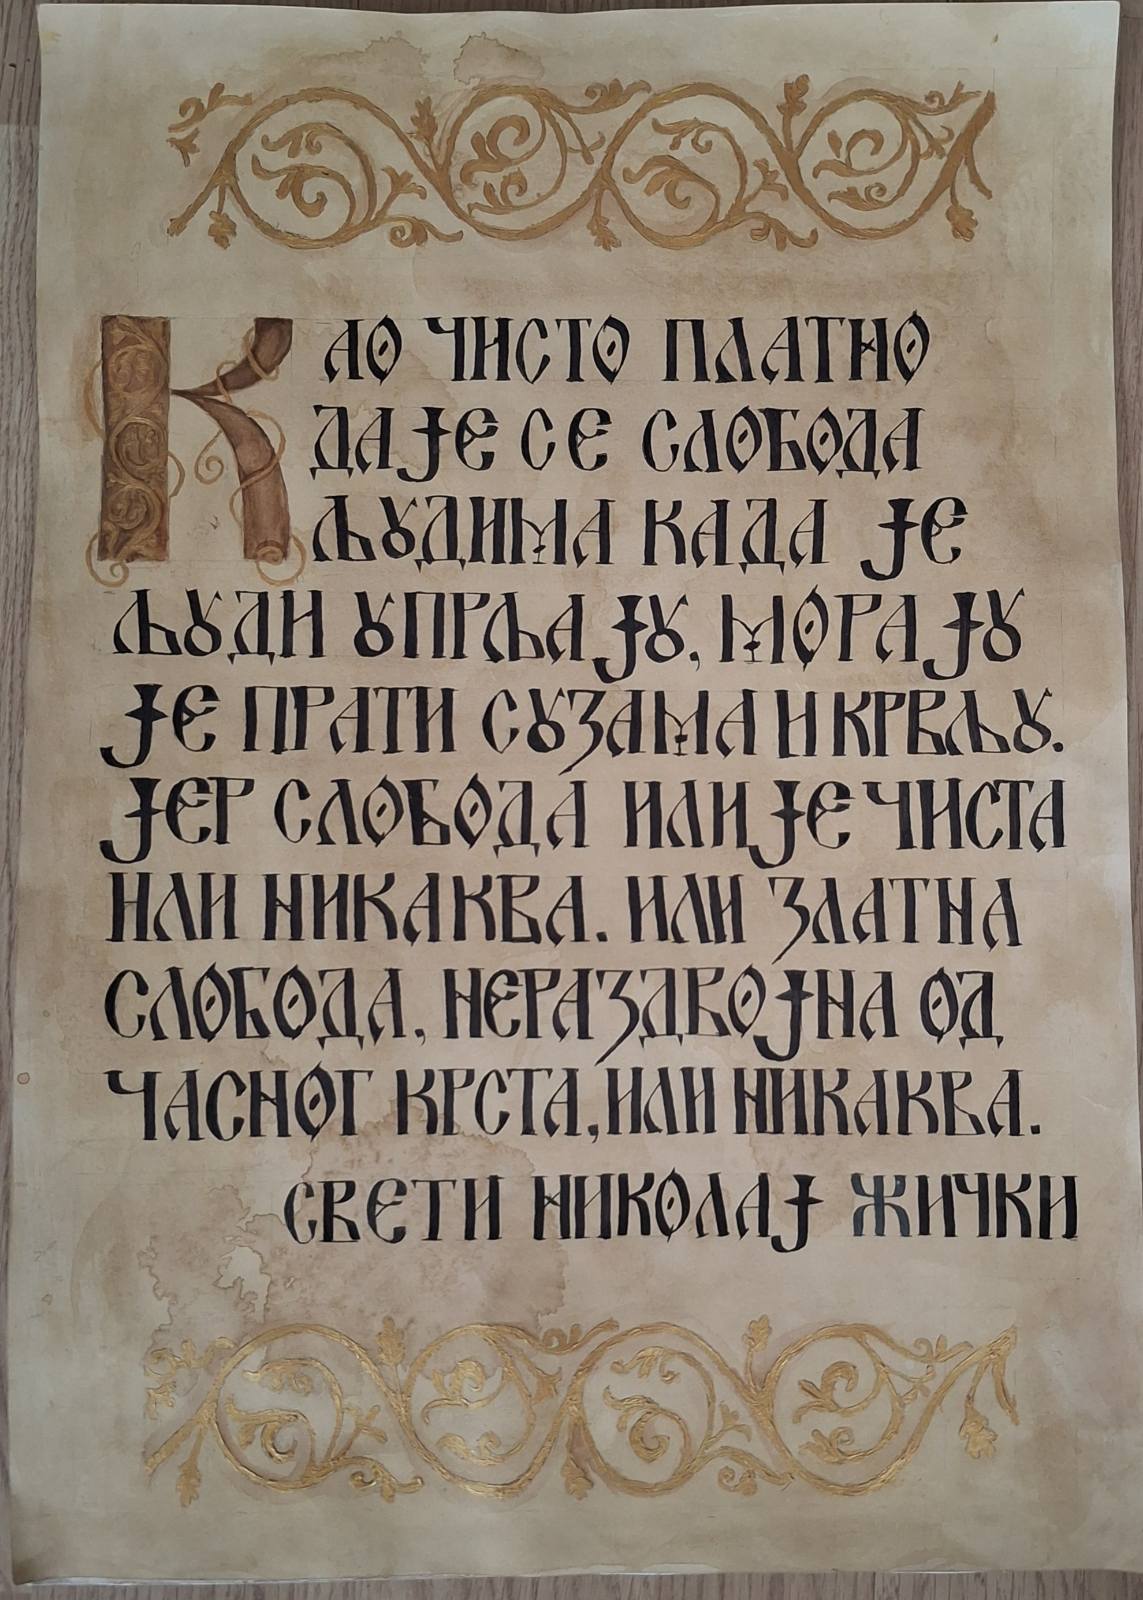 КАО ЧИСТО ПЛАТНО
ДАЈЕ СЕ СЛОБОДА
ЉУДИМА КАДА ЈЕ
ЉУДИ УПРЉАЈУ, МОРАЈУ
ЈЕ ПРАТИ СУЗАМА И КРВЉУ.
ЈЕР СЛОБОДА ИЛИ ЈЕ ЧИСТА
ИЛИ НИКАКВА. ИЛИ ЗЛАТНА
СЛОБОДА, НЕРАЗДВОЈНА ОД
ЧАСНОГ КРСТА, ИЛИ НИКАКВА.
СВЕТИ НИКОЛАЈ ЖИЧКИ